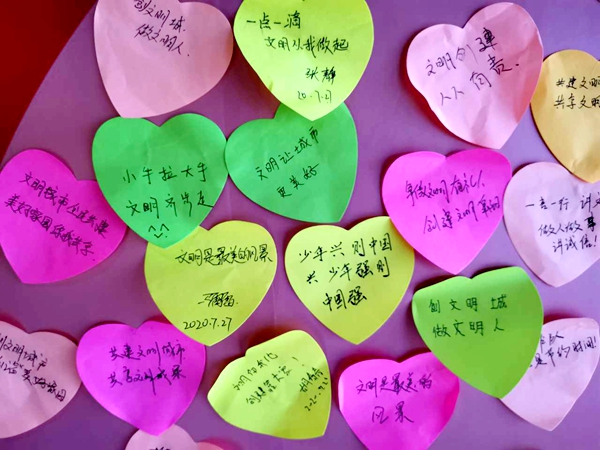 创文明城
做文明人.
一点一滴
文明从我做起
20.7.27
文明创建
人人有责.
共建文明
共享文明
小手拉大手
文明齐步走
^_^
文明让城市
更美好
争做文明有礼人
创建文明
文明城市人人共建
美好家园
一言一行 讲文
做人做事
讲诚信!
文明是最美的风景
2020.7.27
少年兴则中国
兴 少年强则
中国强
创文明城
做文明人
共建文明城市
共享文明成果
文明是最美的
风景